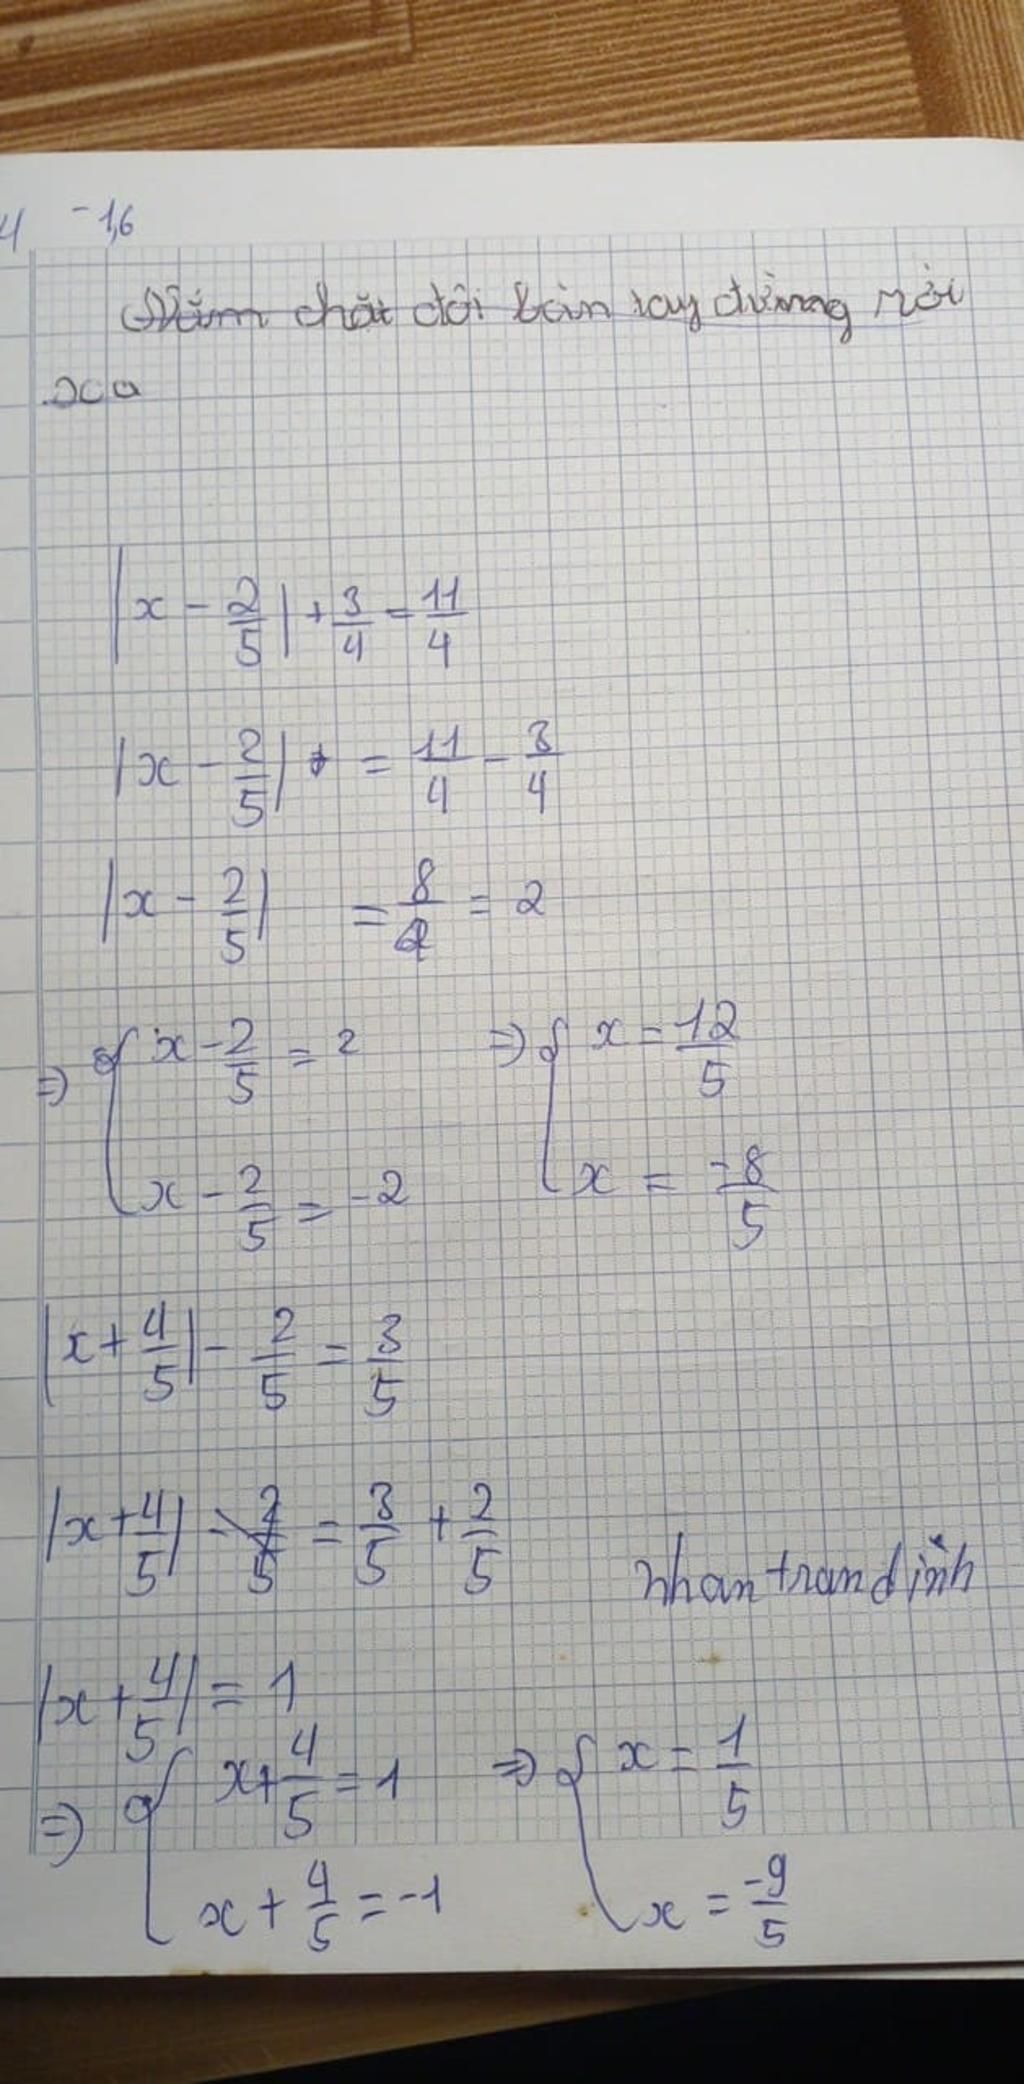 4 -1,6
Nắm chặt đôi bàn tay đừng rời
xa
|x - 2/5| + 3/4 = 11/4
|x - 2/5| = 11/4 - 3/4
|x - 2/5| = 8/4 = 2
=> { x - 2/5 = 2 => { x = 12/5
x - 2/5 = -2 x = -8/5
|x + 4/5| - 2/5 = 3/5
|x + 4/5| = 3/5 + 2/5
nhan tran đình
|x + 4/5| = 1
=> { x + 4/5 = 1 => { x = 1/5
x + 4/5 = -1 x = -9/5